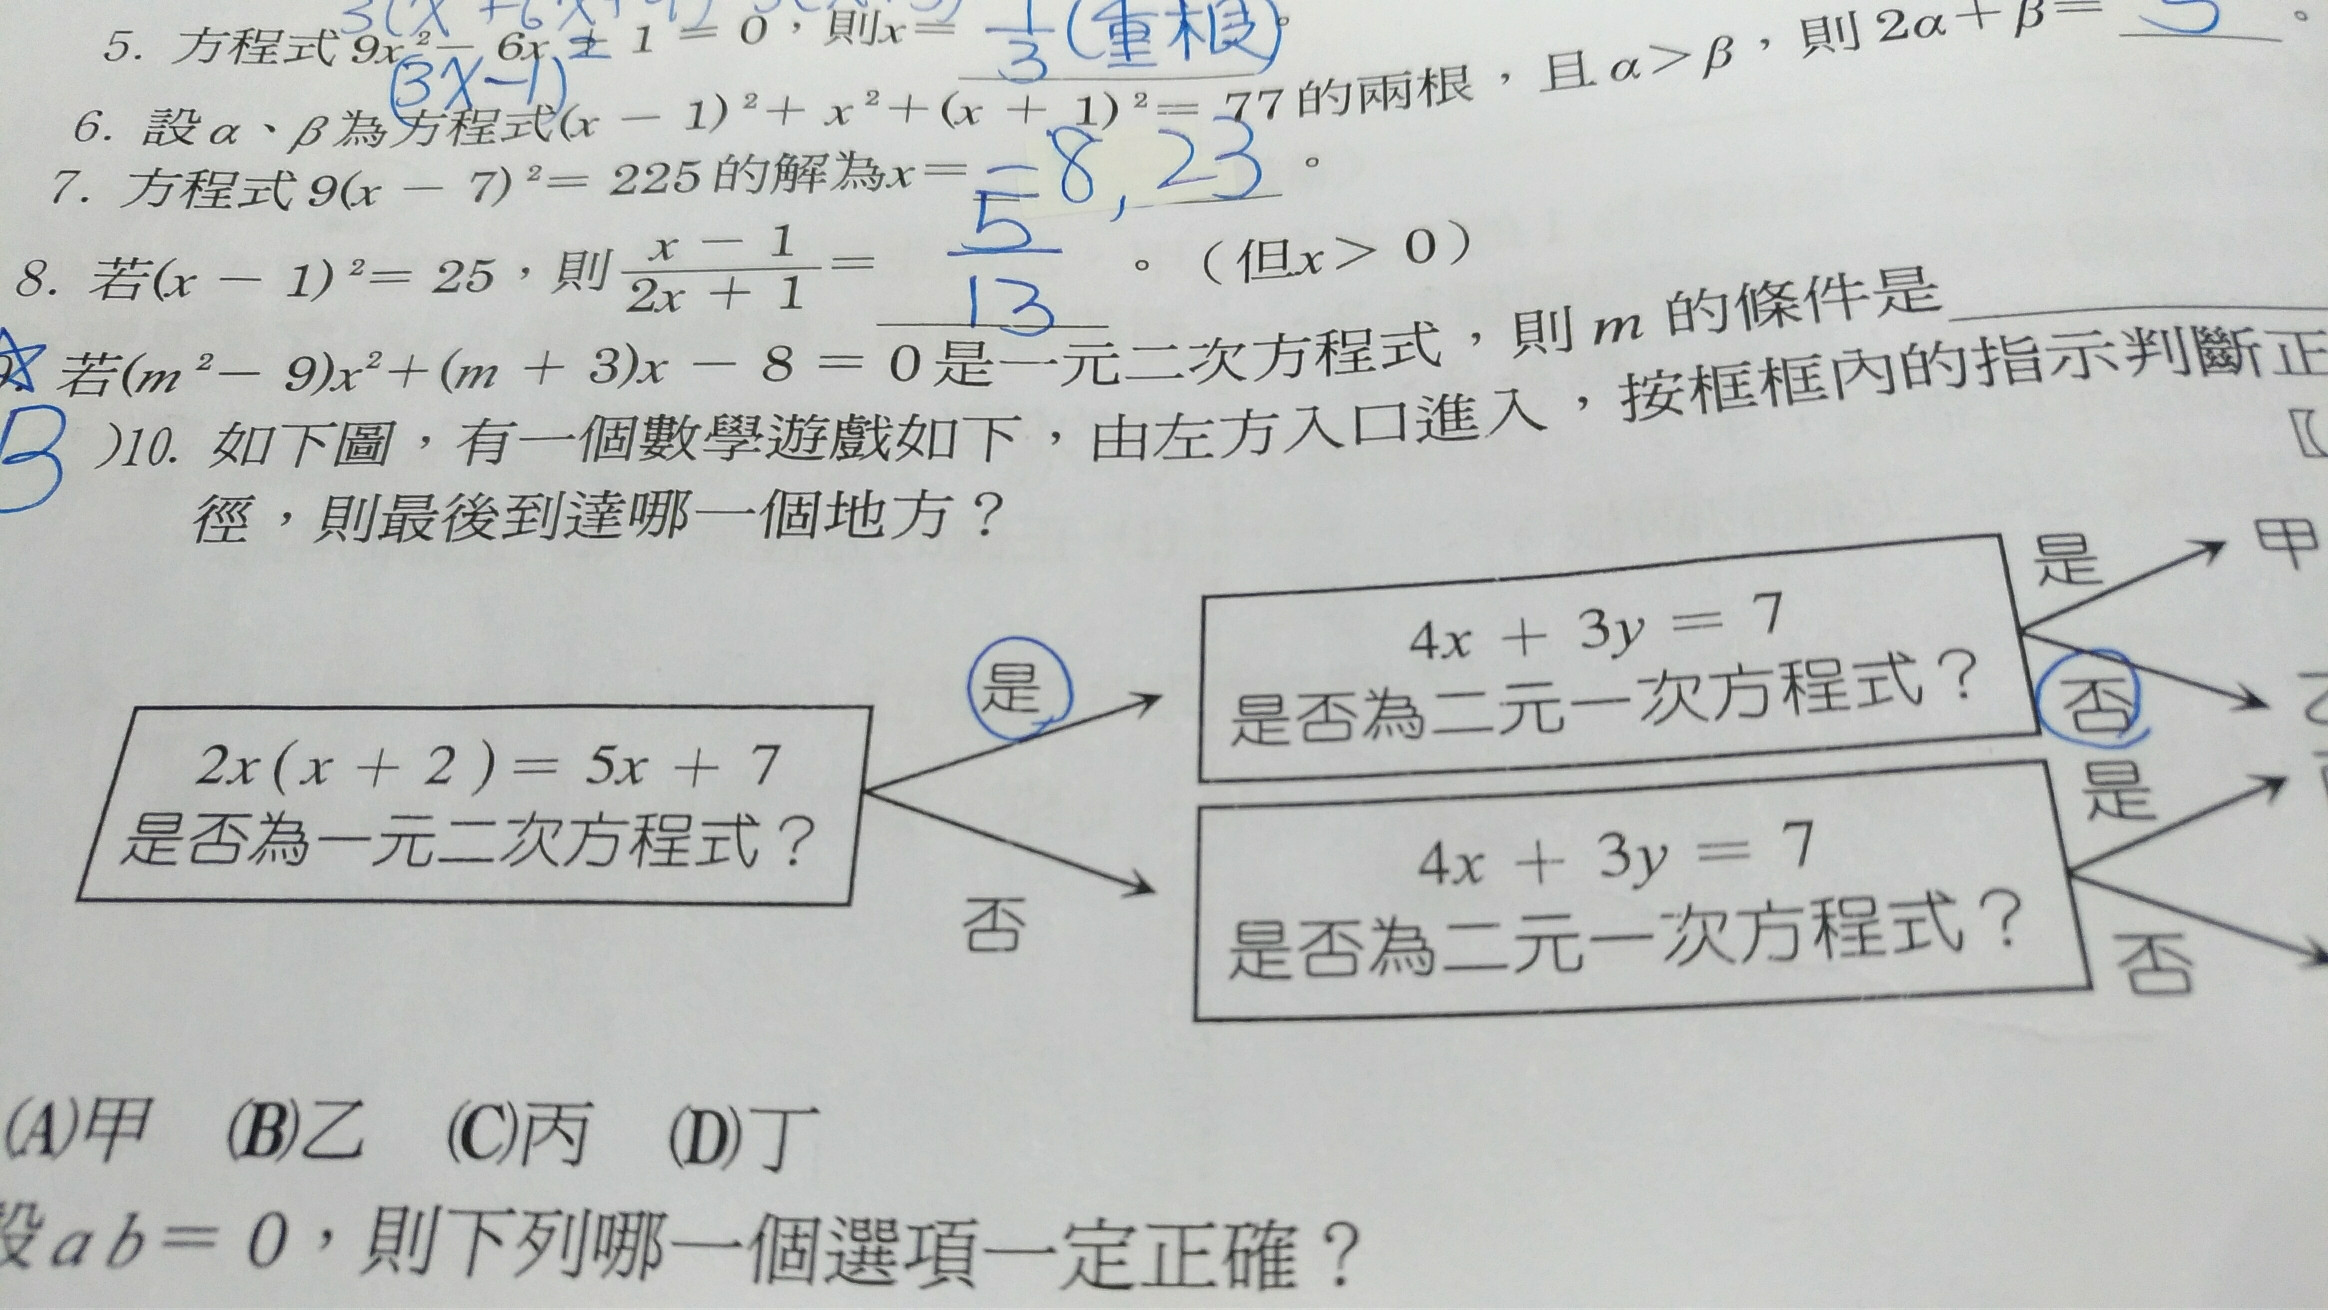 5. 方程式 9x²− 6x + 1 = 0，則x= 1/3 (重根)。
(3x−1)²
6. 設α、β為方程式(x − 1)²+ x²+(x + 1)²= 77的兩根，且α>β，則2α+β= 5 。
7. 方程式 9(x − 7)²= 225的解為x= −8, 23 。
8. 若(x − 1)²= 25，則 (x − 1)/(2x + 1) = 5/13 。（但x> 0）
☆ 若(m²− 9)x²+(m + 3)x − 8 = 0是一元二次方程式，則 m 的條件是
B )10. 如下圖，有一個數學遊戲如下，由左方入口進入，按框框內的指示判斷正
徑，則最後到達哪一個地方？
2x(x + 2)= 5x + 7
是否為一元二次方程式？
是
否
4x + 3y = 7
是否為二元一次方程式？
是
甲
否
乙
4x + 3y = 7
是否為二元一次方程式？
是
否
(A)甲 (B)乙 (C)丙 (D)丁
設ab= 0，則下列哪一個選項一定正確？